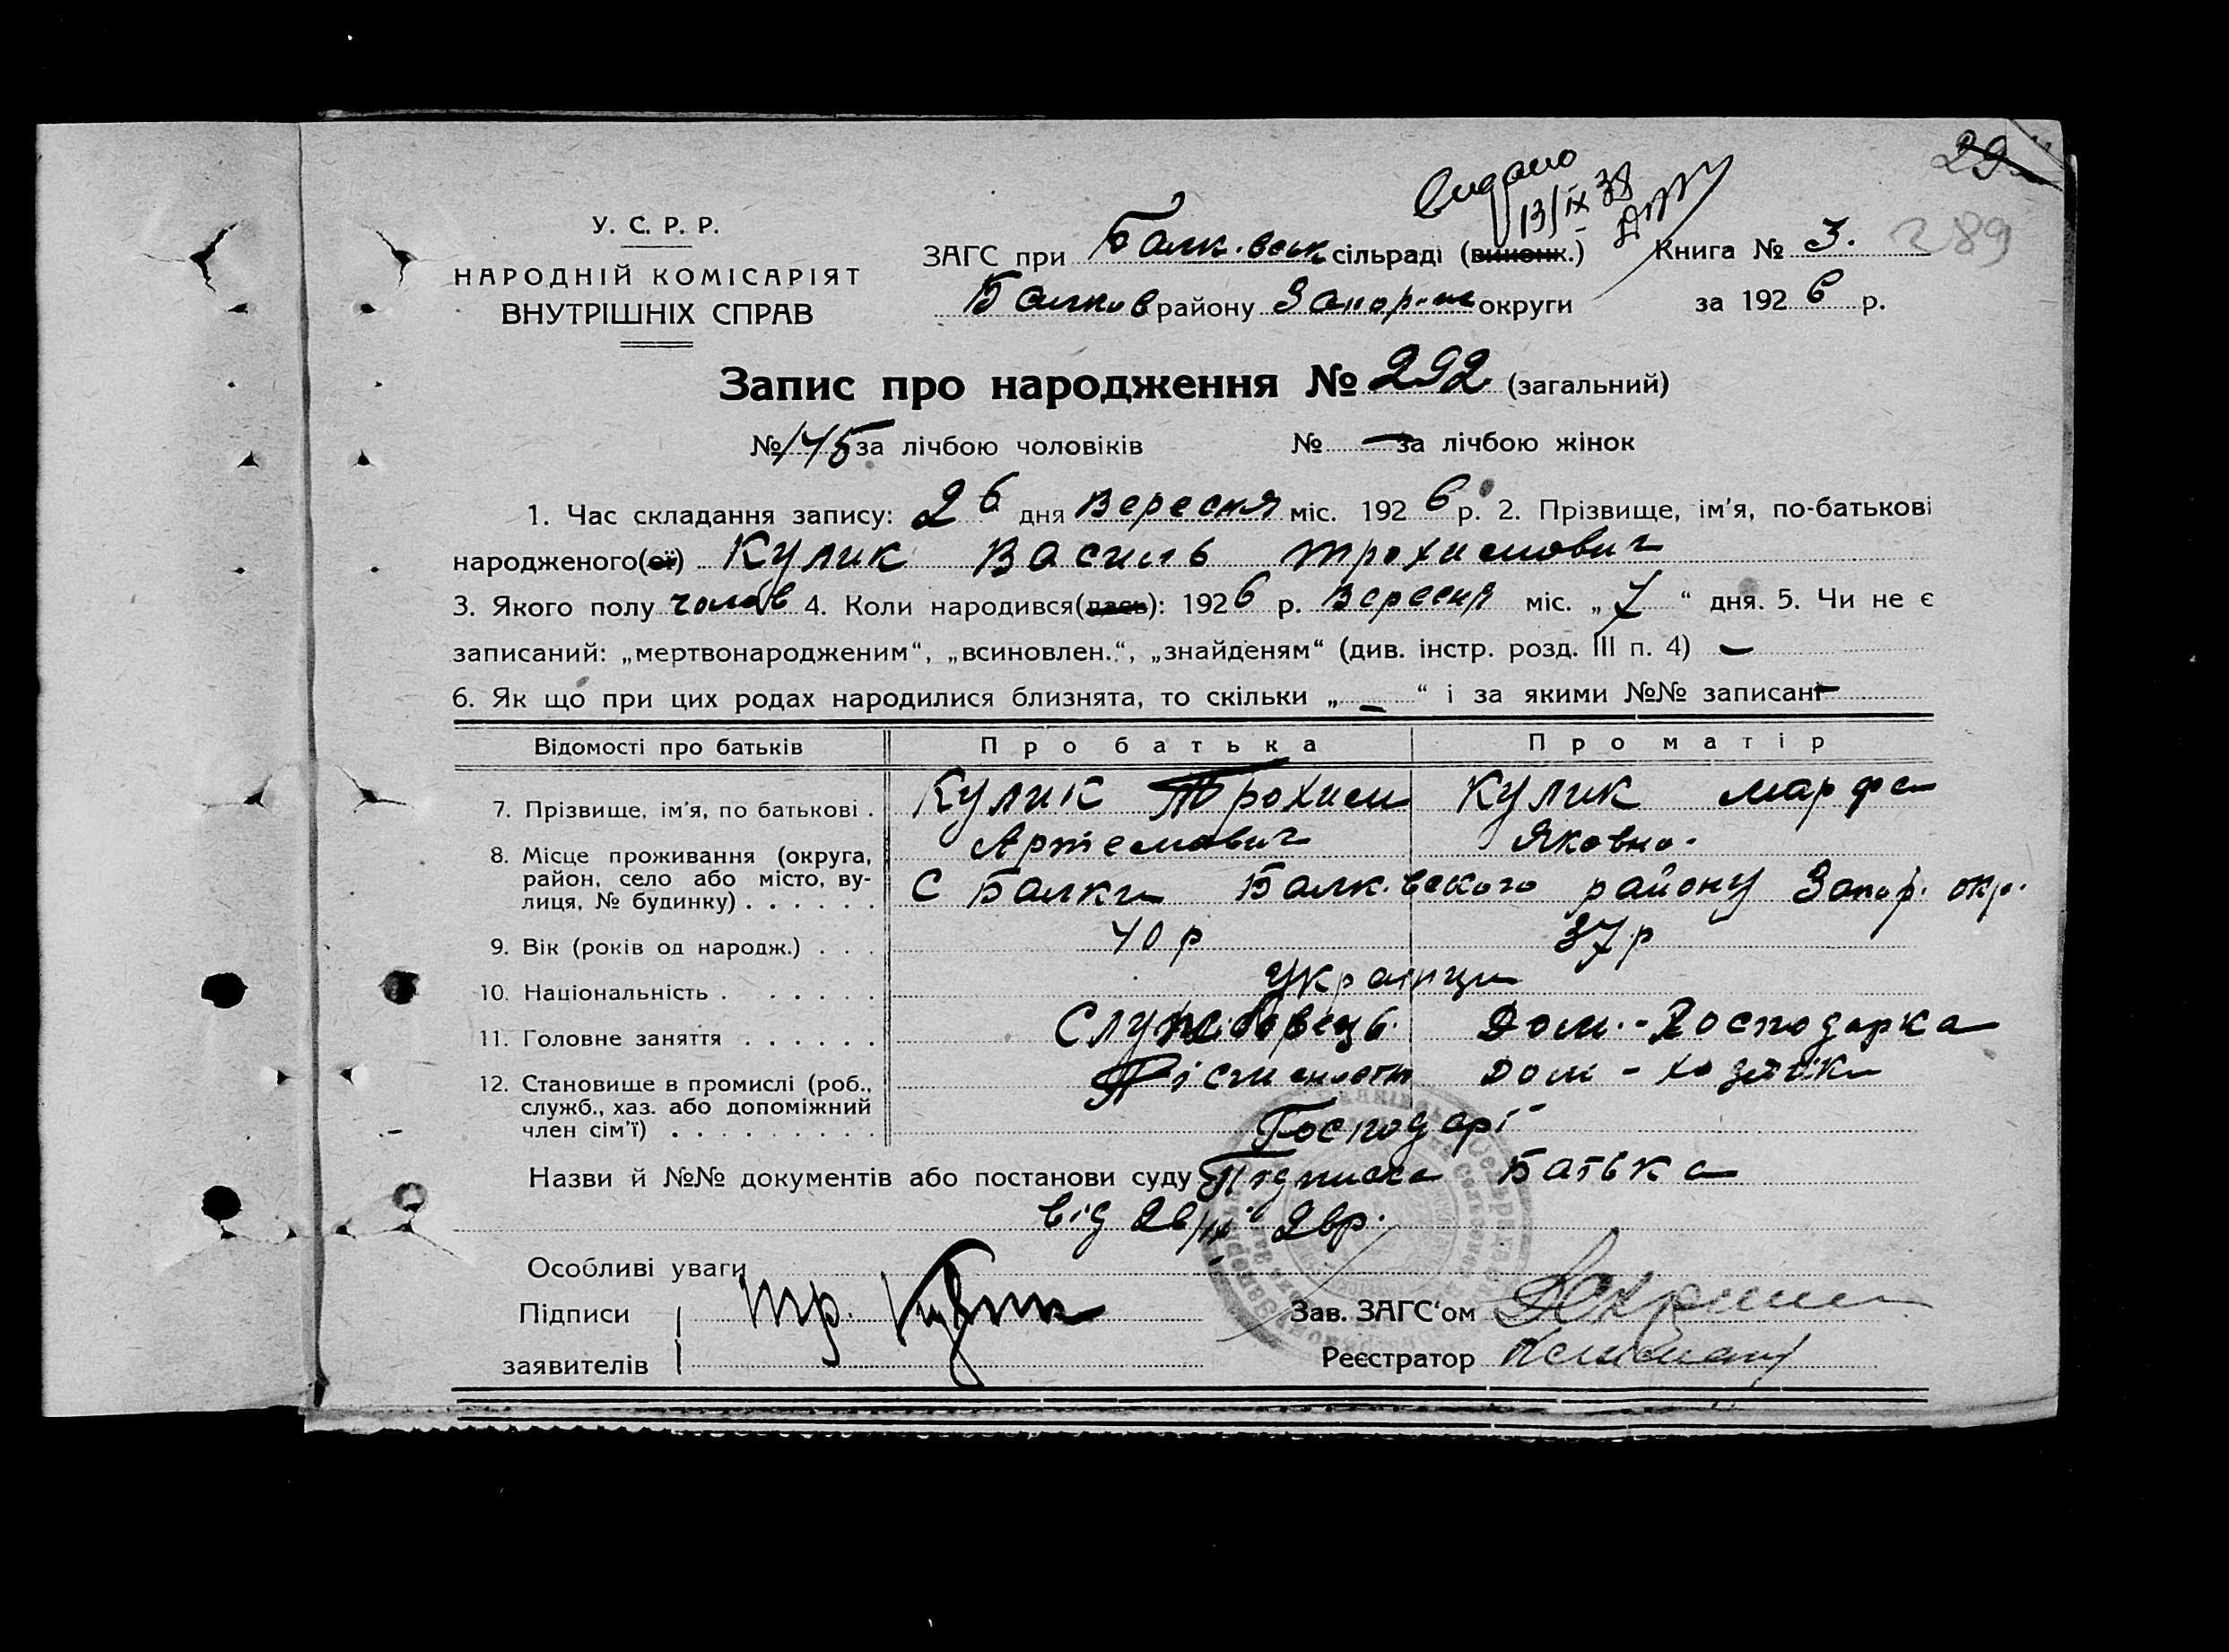 29
289
Видано
13/IX 38
У. С. Р. Р.
НАРОДНІЙ КОМІСАРІЯТ
ВНУТРІШНІХ СПРАВ
ЗАГС при Балк.вськ сільраді (виконк.) Книга № 3.
Балков району Запор-ж округи за 1926 р.
Запис про народження № 292 (загальний)
№ 145 за лічбою чоловіків № — за лічбою жінок
1. Час складання запису: 26 дня Вересня міс. 1926 р. 2. Прізвище, ім'я, по-батькові
народженого(ої) Кулик Василь Трохимович
3. Якого полу чолов 4. Коли народився(лась): 1926 р. Вересня міс. „7“ дня. 5. Чи не є
записаний: „мертвонародженим“, „всиновлен.“, „знайденям“ (див. інстр. розд. III п. 4) —
6. Як що при цих родах народилися близнята, то скільки „—“ і за якими №№ записані —
Відомості про батьків Про батька Про матір
7. Прізвище, ім'я, по батькові . Кулик Трохим Кулик Марфа
Артемович Яковна.
8. Місце проживання (округа,
район, село або місто, ву-
лиця, № будинку) . . . . . . С Балки Балк.вского району Запор. окр.
9. Вік (років од народж.) . . . 40 р 37 р
10. Національність . . . . . . Українци
11. Головне заняття . . . . . . Службовець. Дом.-Господарка
12. Становище в промислі (роб.,
служб., хаз. або допоміжний
член сім'ї) . . . . . . . . . Дом - хозяйка
Господарі
Назви й №№ документів або постанови суду Підписка Батька
від 26/IX 26р.
Особливі уваги
Підписи Тр. Кулик Зав. ЗАГС'ом
заявителів Реєстратор